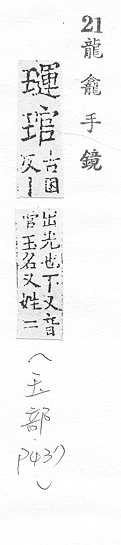 21 龍龕手鏡
琯
古困
反丨
出光也下又音
官玉名又姓二
(玉部.P437)